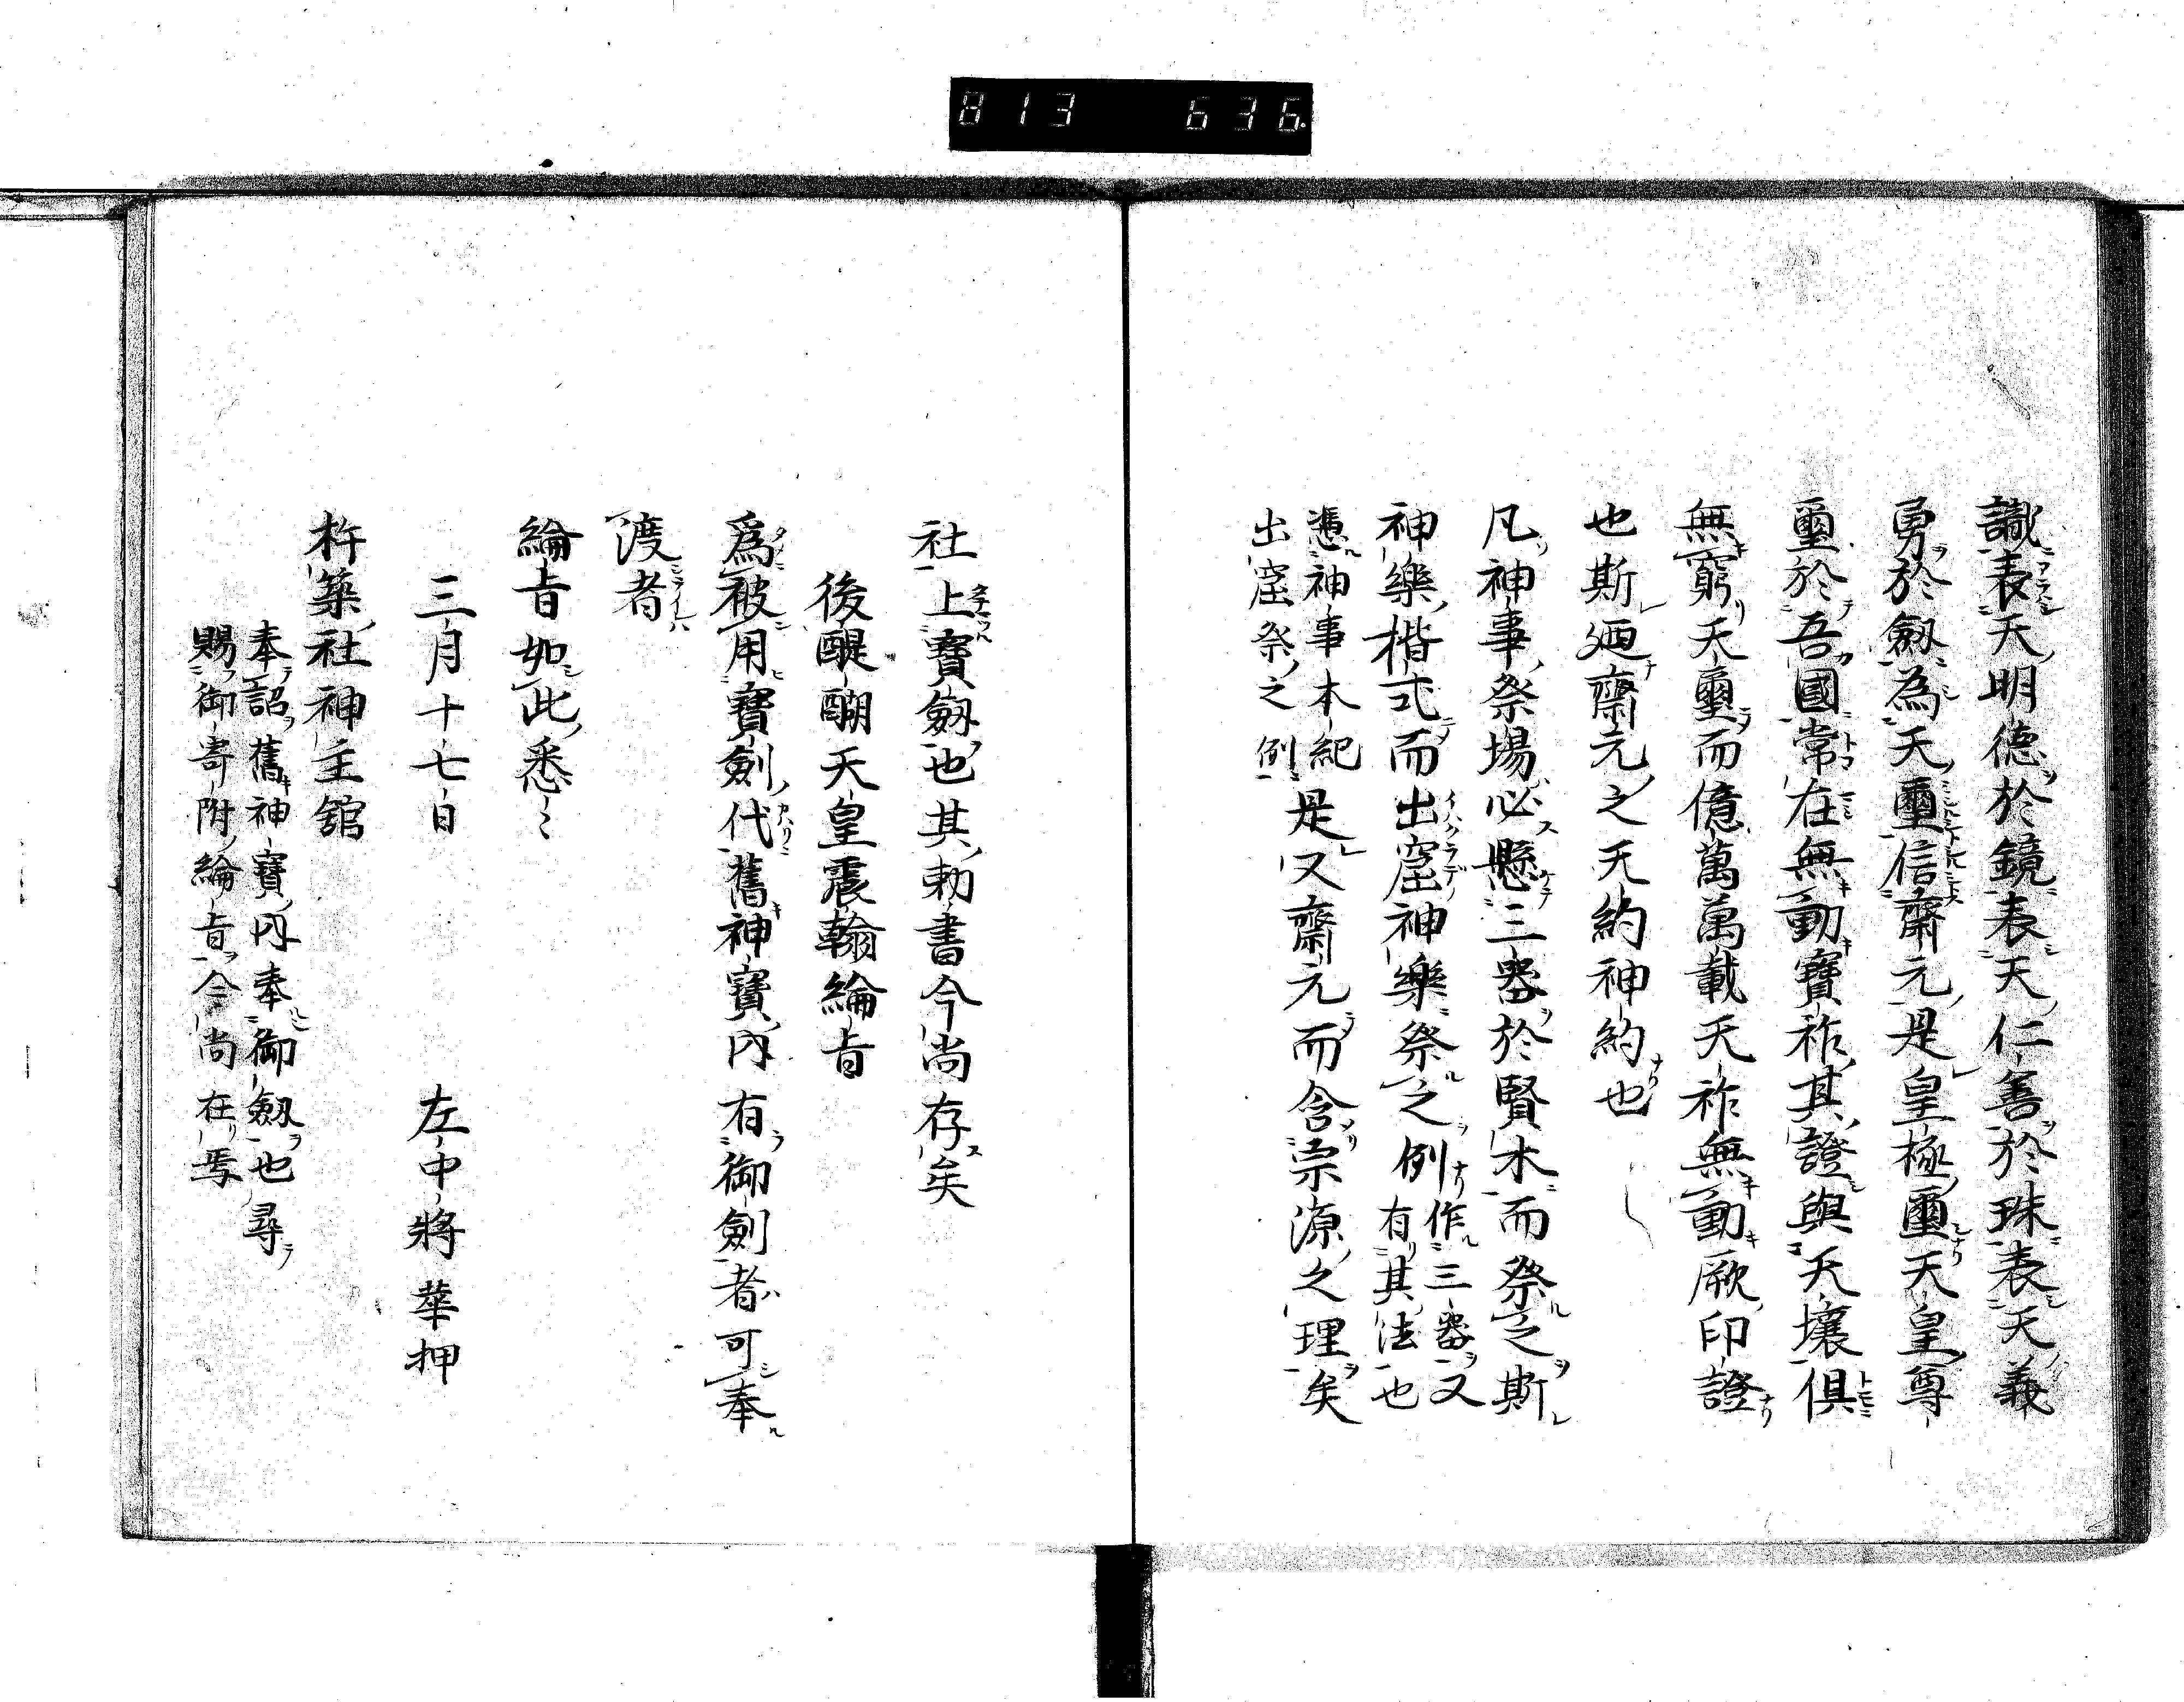 813 636
識表天明德於鏡表天仁善於珠表天義
勇於劔為天璽信齋元是皇極璽天皇尊
璽於吾國常在無動寶祚其證與天壤俱
無窮天璽而億萬萬載天祚無動厥印證
也斯廼齋元之天約神約也
凡神事祭場必懸三器於賢木而祭之斯
神樂楷式而出窟神樂祭之例作三器又
有其法也
憑神事本紀
出窟祭之例是又齋元而含宗源之理矣
社上寶劔也其勅書今尚存矣
後醍醐天皇震翰綸旨
爲被用寶劍代舊神寶內有御劍者可奉
渡者
綸旨如此悉〻
三月十七日 左中將華押
杵築社神主舘
奉詔舊神寶內奉御劔也尋
賜御寄附綸旨今尚在焉